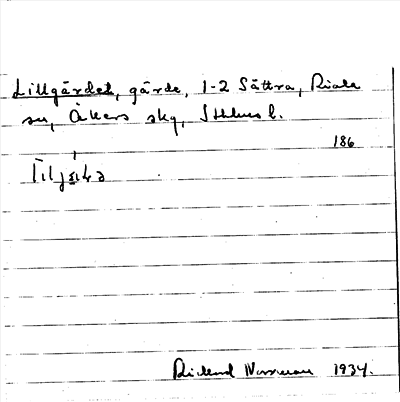 Lillgärdet, gärde, 1-2 Sättra, Riala
sn, Åkers skg, Sthlms l.
186
Rickard Norrman 1934.